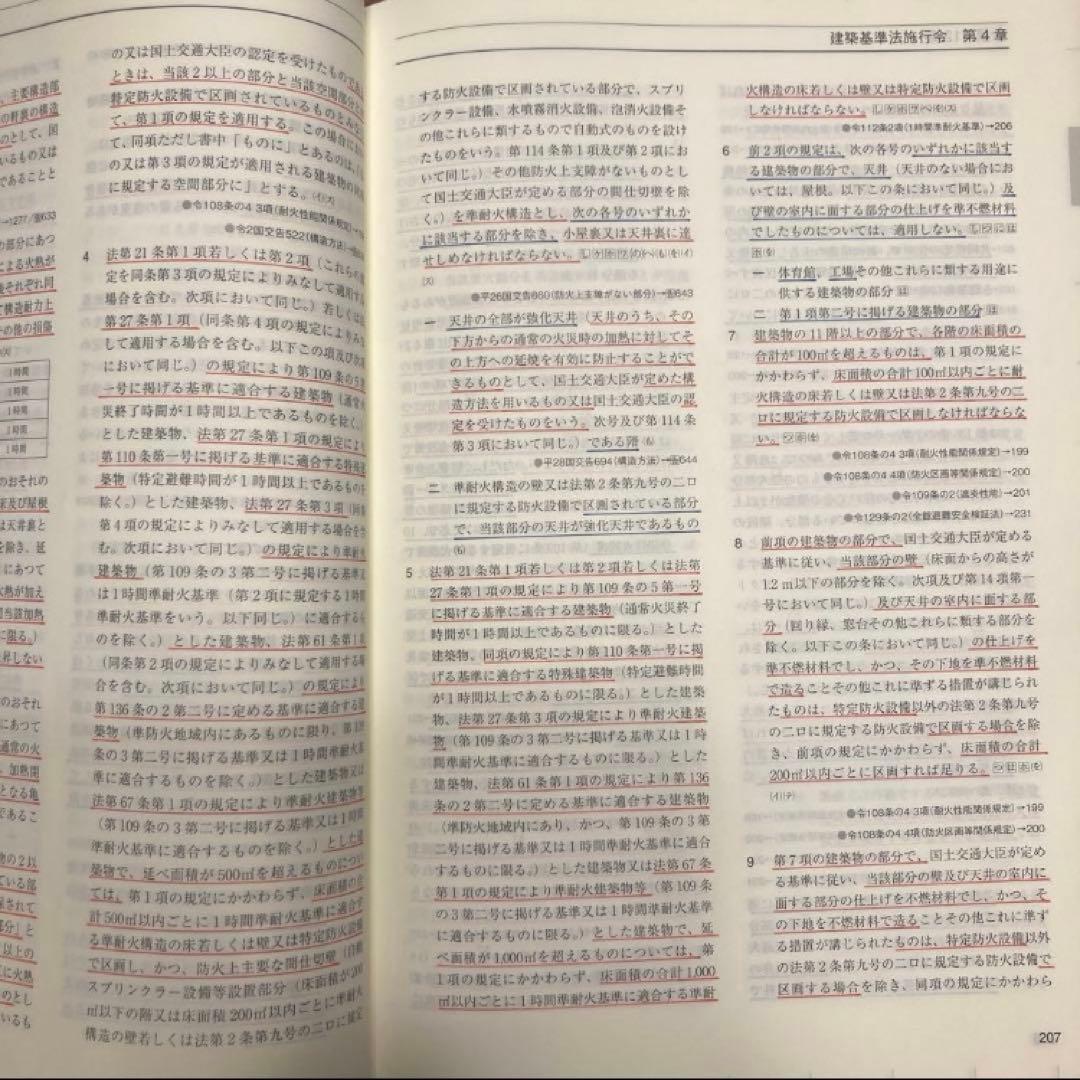 建築基準法施行令 第4章
、主要構造部
の軒裏の構造
のとして、国
いるもの又は
であることと
→277/告633
の部分にあつ
による火熱が
後それぞれ同
て構造耐力上
その他の損傷
1時間
1時間
1時間
1時間
1時間
のおそれの
床及び屋根
は天井裏と
を除き、延
にあつて
火熱が加え
当該加熱
に限る。）
昇しない
のおそれ
にあつて
通常の火
、加熱開
となる亀
であるこ
物の2以
ている部
されて
部分」と
以上の
に火熱
のとし
いるも
の又は国土交通大臣の認定を受けたものであ
ときは、当該2以上の部分と当該空間部分と
特定防火設備で区画されているものとみな
て、第1項の規定を適用する。この場合にお
て、同項ただし書中「ものに」とあるのは、「
の又は第3項の規定が適用される建築物の同
に規定する空間部分に」とする。(イ)(ス)
●令108条の4 3項(耐火性能関係規定)→
●令2国交告522(構造方法)→
4 法第21条第1項若しくは第2項（これらの
定を同条第3項の規定によりみなして適用す
場合を含む。次項において同じ。）若しくは
第27条第1項（同条第4項の規定によりみな
して適用する場合を含む。以下この項及び次項
において同じ。）の規定により第109条の5第
一号に掲げる基準に適合する建築物（通常火
災終了時間が1時間以上であるものを除く。
とした建築物、法第27条第1項の規定により
第110条第一号に掲げる基準に適合する特殊建
築物（特定避難時間が1時間以上であるものを
除く。）とした建築物、法第27条第3項（同条
第4項の規定によりみなして適用する場合を含
む。次項において同じ。）の規定により準耐火
建築物（第109条の3第二号に掲げる基準又
は1時間準耐火基準（第2項に規定する1時間
準耐火基準をいう。以下同じ。）に適合するも
のを除く。）とした建築物、法第61条第1項
（同条第2項の規定によりみなして適用する場
合を含む。次項において同じ。）の規定により
第136条の2第二号に定める基準に適合する建
築物（準防火地域内にあるものに限り、第109
条の3第二号に掲げる基準又は1時間準耐火基
準に適合するものを除く。）とした建築物又は
法第67条第1項の規定により準耐火建築物等
（第109条の3第二号に掲げる基準又は1時間
準耐火基準に適合するものを除く。）とした建
築物で、延べ面積が500㎡を超えるものについ
ては、第1項の規定にかかわらず、床面積の合
計500㎡以内ごとに1時間準耐火基準に適合す
る準耐火構造の床若しくは壁又は特定防火設備
で区画し、かつ、防火上主要な間仕切壁（自動
スプリンクラー設備等設置部分（床面積が200
㎡以下の階又は床面積200㎡以内ごとに準耐火
構造の壁若しくは法第2条第九号の二ロに規定
する防火設備で区画されている部分で、スプリ
ンクラー設備、水噴霧消火設備、泡消火設備そ
の他これらに類するもので自動式のものを設け
たものをいう。第114条第1項及び第2項にお
いて同じ。）その他防火上支障がないものとし
て国土交通大臣が定める部分の間仕切壁を除
く。）を準耐火構造とし、次の各号のいずれか
に該当する部分を除き、小屋裏又は天井裏に達
せしめなければならない。
(ス)
●平26国交告860(防火上支障がない部分)→告643
一 天井の全部が強化天井（天井のうち、その
下方からの通常の火災時の加熱に対してそ
の上方への延焼を有効に防止することがで
きるものとして、国土交通大臣が定めた構
造方法を用いるもの又は国土交通大臣の認
定を受けたものをいう。次号及び第114条
第3項において同じ。）である階(6)
●平28国交告694(構造方法)→告644
二 準耐火構造の壁又は法第2条第九号の二ロ
に規定する防火設備で区画されている部分
で、当該部分の天井が強化天井であるもの
(6)
5 法第21条第1項若しくは第2項若しくは法第
27条第1項の規定により第109条の5第一号
に掲げる基準に適合する建築物（通常火災終了
時間が1時間以上であるものに限る。）とした
建築物、同項の規定により第110条第一号に掲
げる基準に適合する特殊建築物（特定避難時間
が1時間以上であるものに限る。）とした建築
物、法第27条第3項の規定により準耐火建築
物（第109条の3第二号に掲げる基準又は1時
間準耐火基準に適合するものに限る。）とした
建築物、法第61条第1項の規定により第136
条の2第二号に定める基準に適合する建築物
（準防火地域内にあり、かつ、第109条の3第
二号に掲げる基準又は1時間準耐火基準に適合
するものに限る。）とした建築物又は法第67条
第1項の規定により準耐火建築物等（第109条
の3第二号に掲げる基準又は1時間準耐火基準
に適合するものに限る。）とした建築物で、延
べ面積が1,000㎡を超えるものについては、第
1項の規定にかかわらず、床面積の合計1,000
㎡以内ごとに1時間準耐火基準に適合する準耐
火構造の床若しくは壁又は特定防火設備で区画
しなければならない。
●令112条2項(1時間準耐火基準)→206
6 前2項の規定は、次の各号のいずれかに該当す
る建築物の部分で、天井（天井のない場合にお
いては、屋根。以下この条において同じ。）及
び壁の室内に面する部分の仕上げを準不燃材料
でしたものについては、適用しない。
一 体育館、工場その他これらに類する用途に
供する建築物の部分
二 第1項第二号に掲げる建築物の部分
7 建築物の11階以上の部分で、各階の床面積の
合計が100㎡を超えるものは、第1項の規定に
かかわらず、床面積の合計100㎡以内ごとに耐
火構造の床若しくは壁又は法第2条第九号の二
ロに規定する防火設備で区画しなければならな
い。
●令108条の4 3項(耐火性能関係規定)→199
●令108条の4 4項(防火区画等関係規定)→200
●令109条の2(遮炎性能)→201
●令129条の2(全館避難安全検証法)→231
8 前項の建築物の部分で、国土交通大臣が定める
基準に従い、当該部分の壁（床面からの高さが
1.2m以下の部分を除く。次項及び第14項第一
号において同じ。）及び天井の室内に面する部
分（回り縁、窓台その他これらに類する部分を
除く。以下この条において同じ。）の仕上げを
準不燃材料でし、かつ、その下地を準不燃材料
で造ることその他これに準ずる措置が講じられ
たものは、特定防火設備以外の法第2条第九号
の二ロに規定する防火設備で区画する場合を除
き、前項の規定にかかわらず、床面積の合計
200㎡以内ごとに区画すれば足りる。
(イ)(テ)
●令108条の4 3項(耐火性能関係規定)→199
●令108条の4 4項(防火区画等関係規定)→200
9 第7項の建築物の部分で、国土交通大臣が定め
る基準に従い、当該部分の壁及び天井の室内に
面する部分の仕上げを不燃材料でし、かつ、そ
の下地を不燃材料で造ることその他これに準ず
る措置が講じられたものは、特定防火設備以外
の法第2条第九号の二ロに規定する防火設備で
区画する場合を除き、同項の規定にかかわら
207